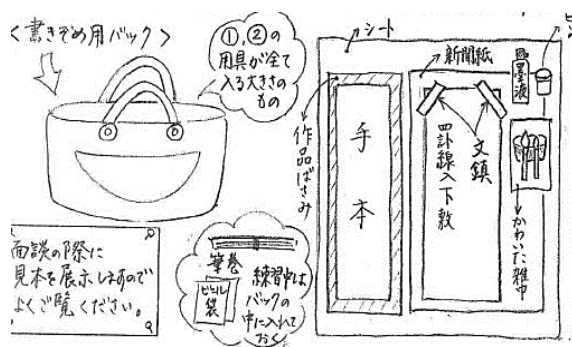 <書きぞめ用バック>
①,②の
用具が全て
入る大きさの
もの
面談の際に
見本を展示しますので
よくご覧ください。
筆巻
ビニル
袋
練習中は
バックの
中に入れて
おく
シート
新聞紙
墨液
作品ばさみ
手本
罫線入下敷
文鎮
かわいた雑巾